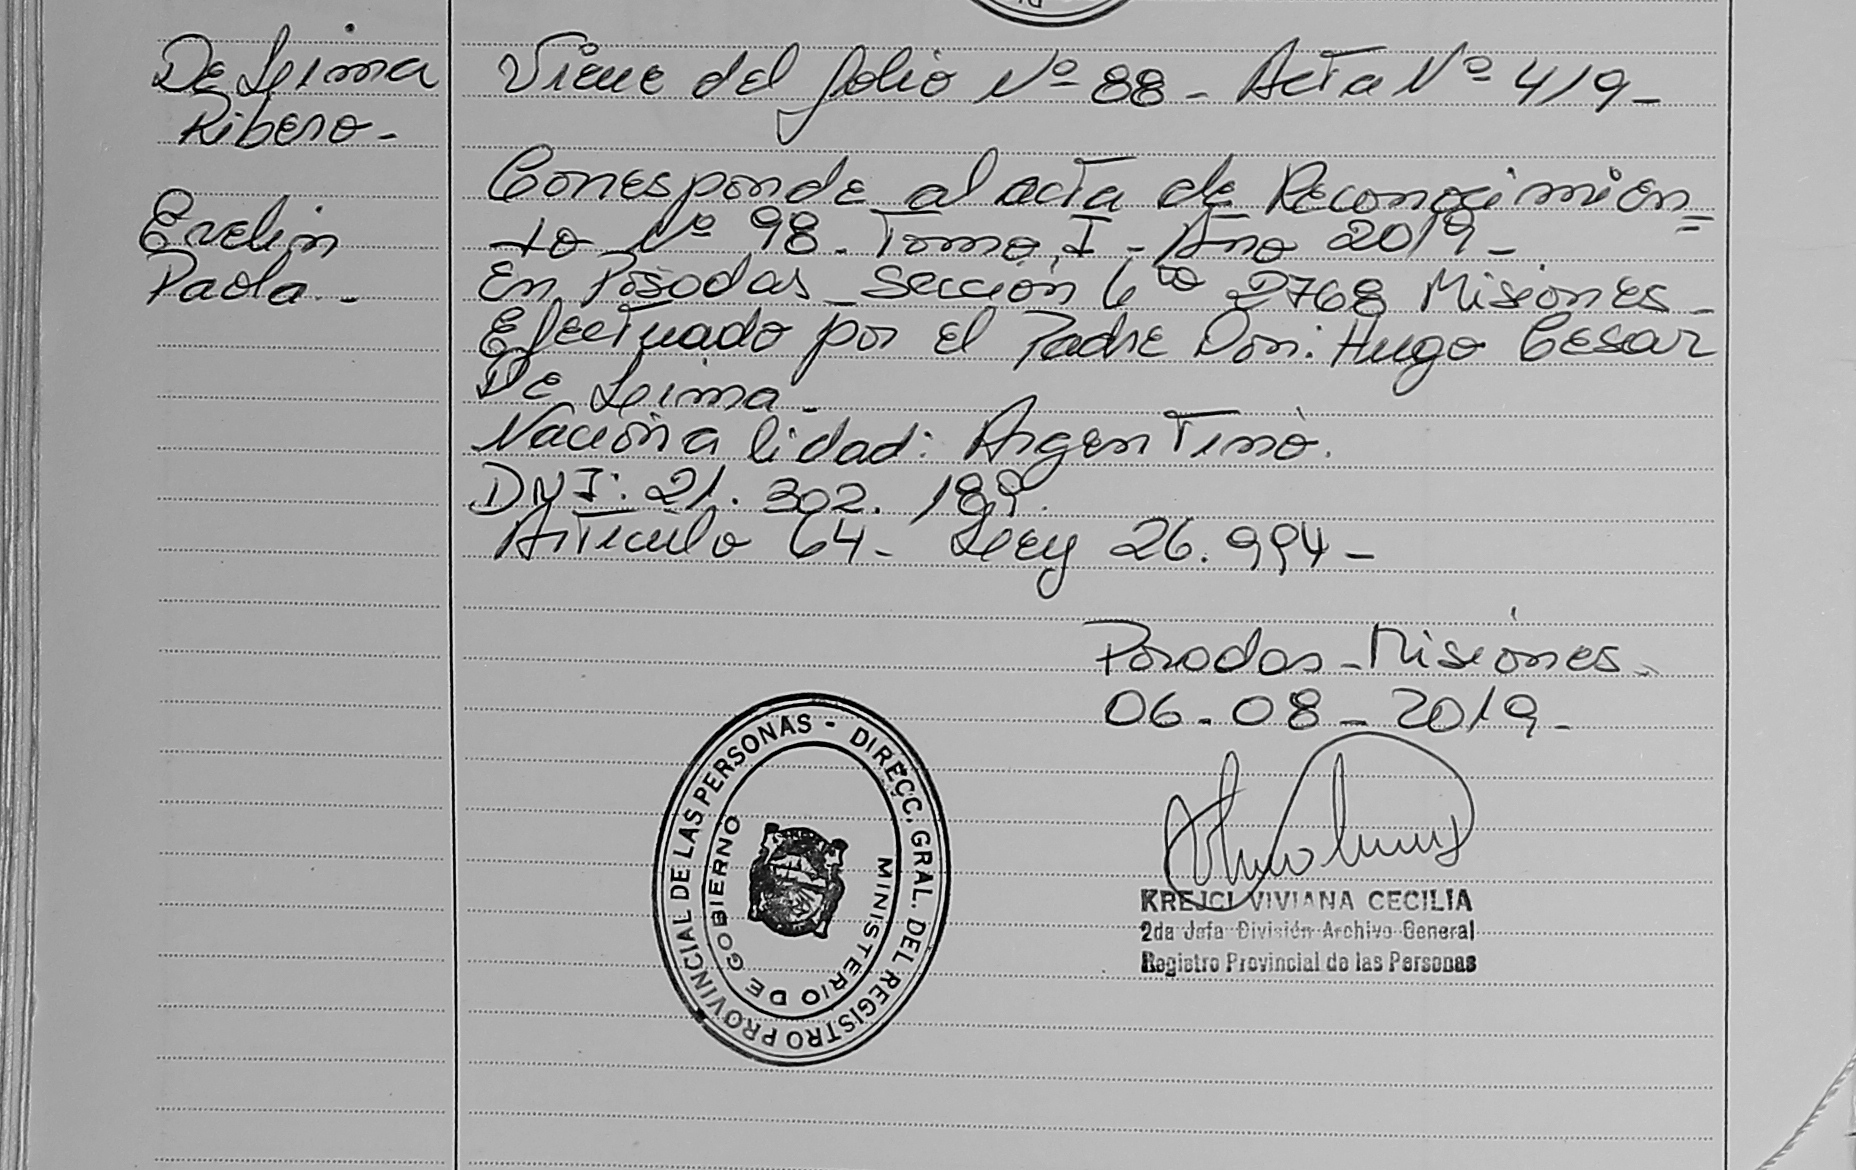 De Leima
Ribero.-
Evelin
Paola.-
Viene del folio Nº 88 - Acta Nº 419-
Corresponde al acta de Reconocimien=
to Nº 98. Tomo I - Año 2019-
En Posadas - Sección 6ta 2768 Misiones-
Efectuado por el Padre Don: Hugo Cesar
De Leima.-
Nacionalidad: Argentino.
DNI: 21.302.189.
Articulo 64- Ley 26.994-
Posadas - Misiones.
06-08-2019-
DIRECC. GRAL. DEL REGISTRO PROVINCIAL DE LAS PERSONAS -
MINISTERIO DE GOBIERNO
KREJCI VIVIANA CECILIA
2da Jefa División Archivo General
Registro Provincial de las Personas